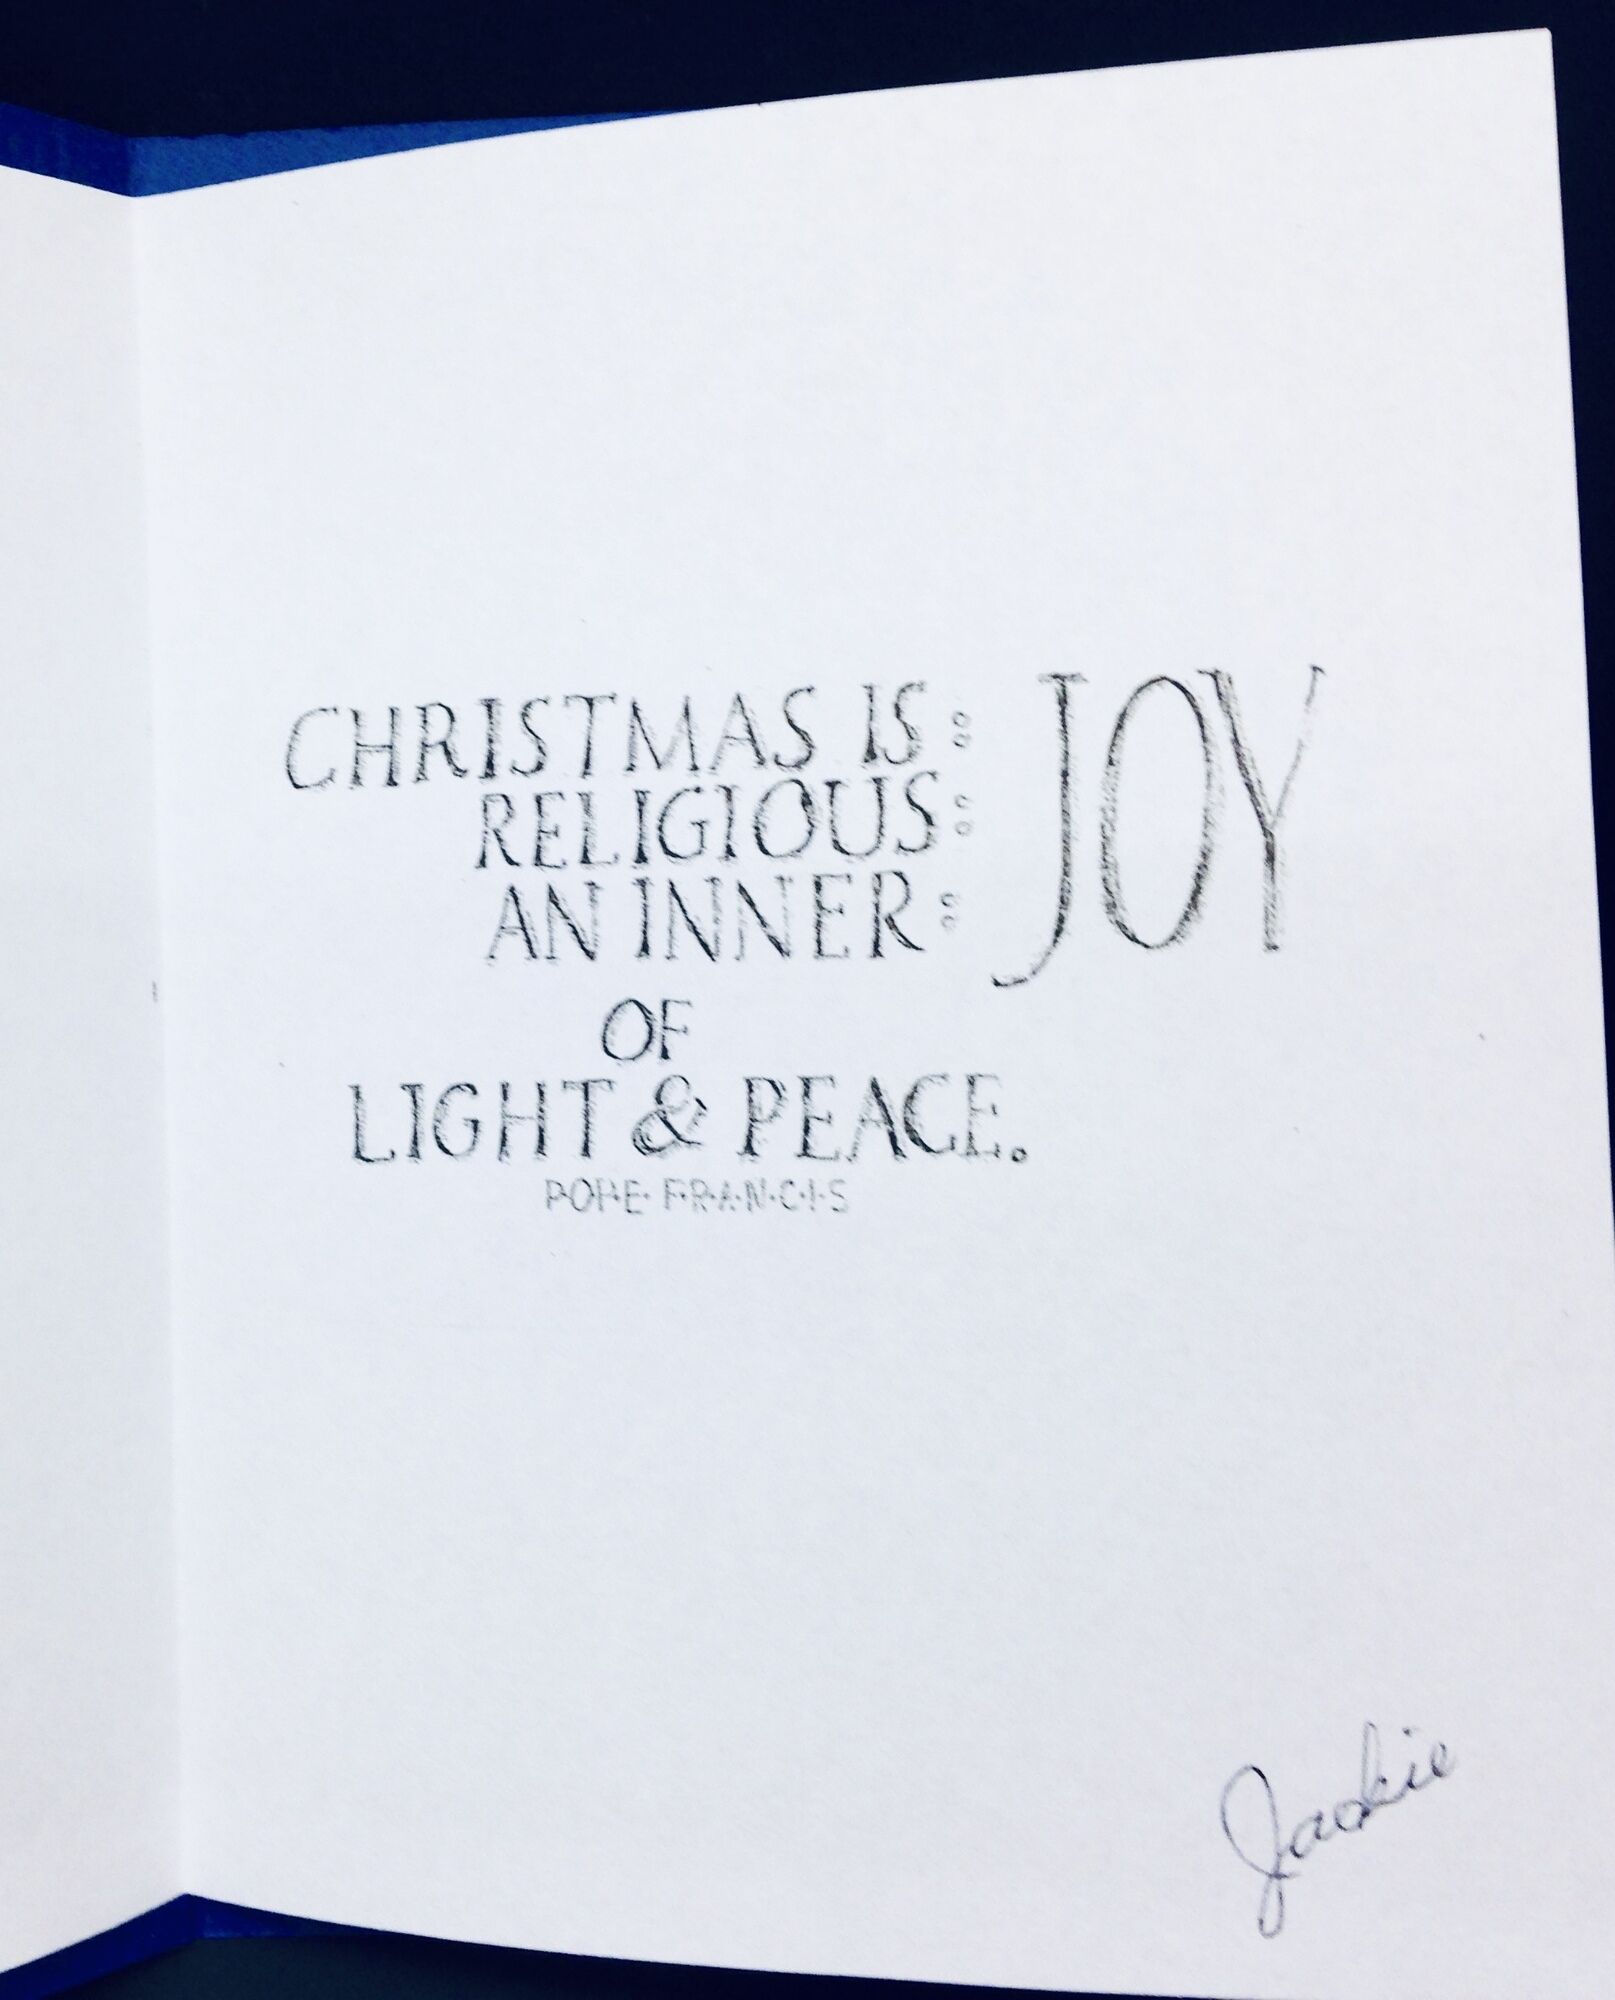 CHRISTMAS IS: JOY
RELIGIOUS:
AN INNER:
OF
LIGHT & PEACE.
POPE FRANCIS
Jackie